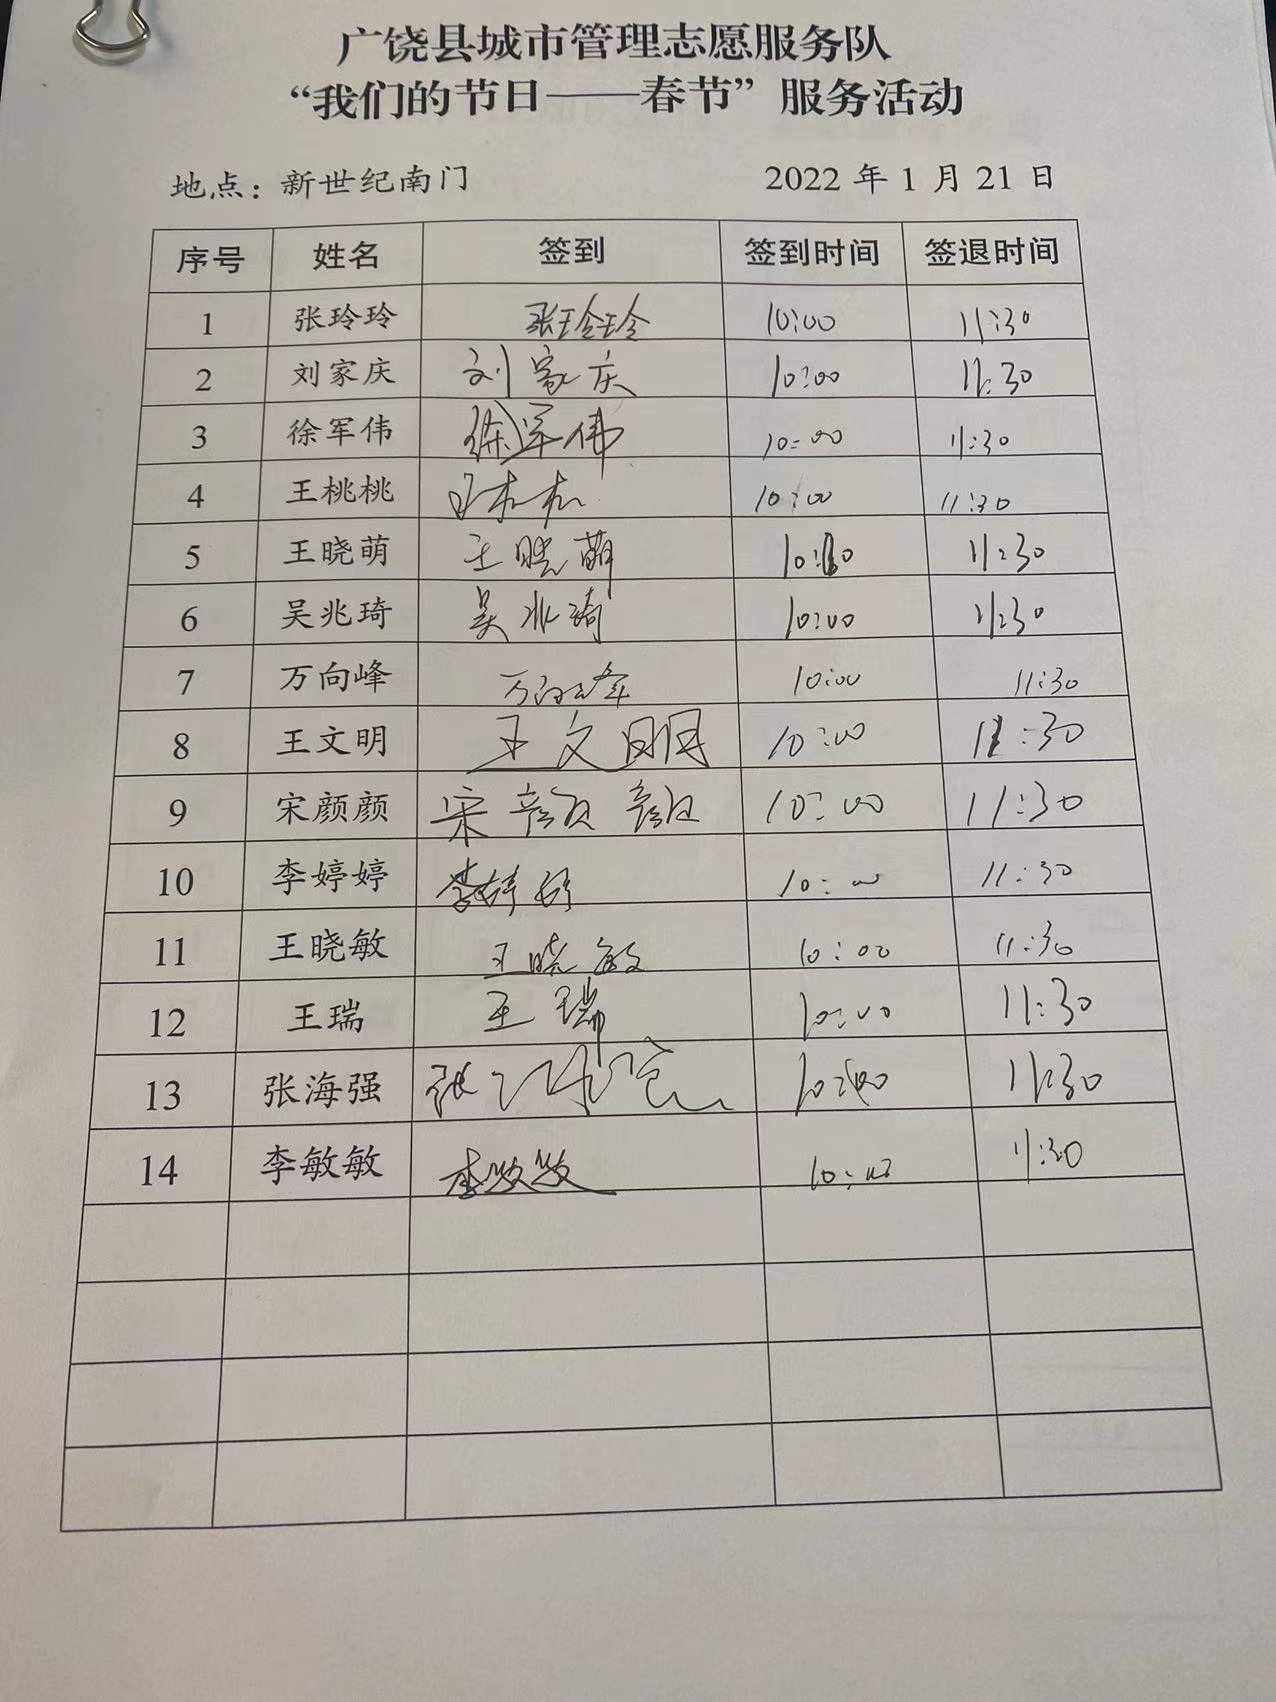 广饶县城市管理志愿服务队
“我们的节日——春节”服务活动
地点：新世纪南门 2022 年 1 月 21 日
序号 姓名 签到 签到时间 签退时间
1 张玲玲 张玲玲 10:00 11:30
2 刘家庆 刘家庆 10:00 11:30
3 徐军伟 徐军伟 10:00 11:30
4 王桃桃 王桃桃 10:00 11:30
5 王晓萌 王晓萌 10:00 11:30
6 吴兆琦 吴兆琦 10:00 11:30
7 万向峰 万向峰 10:00 11:30
8 王文明 王文明 10:00 11:30
9 宋颜颜 宋颜颜 10:00 11:30
10 李婷婷 李婷婷 10:00 11:30
11 王晓敏 王晓敏 10:00 11:30
12 王瑞 王瑞 10:00 11:30
13 张海强 张海强 10:00 11:30
14 李敏敏 李敏敏 10:00 11:30